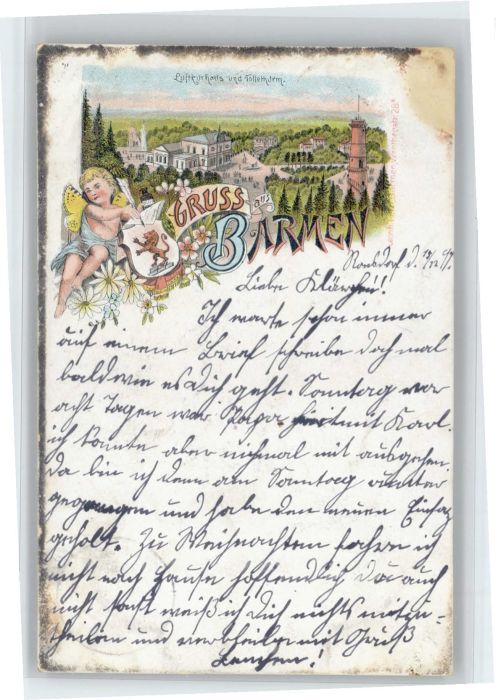 Luftkurhaus und Tölleturm.
GRUSS aus
BARMEN
Ronsdorf d. 18/12 97.
Liebe Klärchen!
Ich warte schon immer
auf einem Brief schreibe doch mal
bald wie es dich geht. Sonntag vor
acht Tagen war Papa hier mit Karl.
ich konnte aber nichmal mit ausgehen.
da bin ich denn am Sonntag
gegangen und habe den neuen
geholt. Zu Weihnachten fahre ich
nicht nach Hause hoffendlich du auch
nicht sonst weiß ich dich nichts mitzu-
theilen und verbleibe mit Gruß
Lenchen!